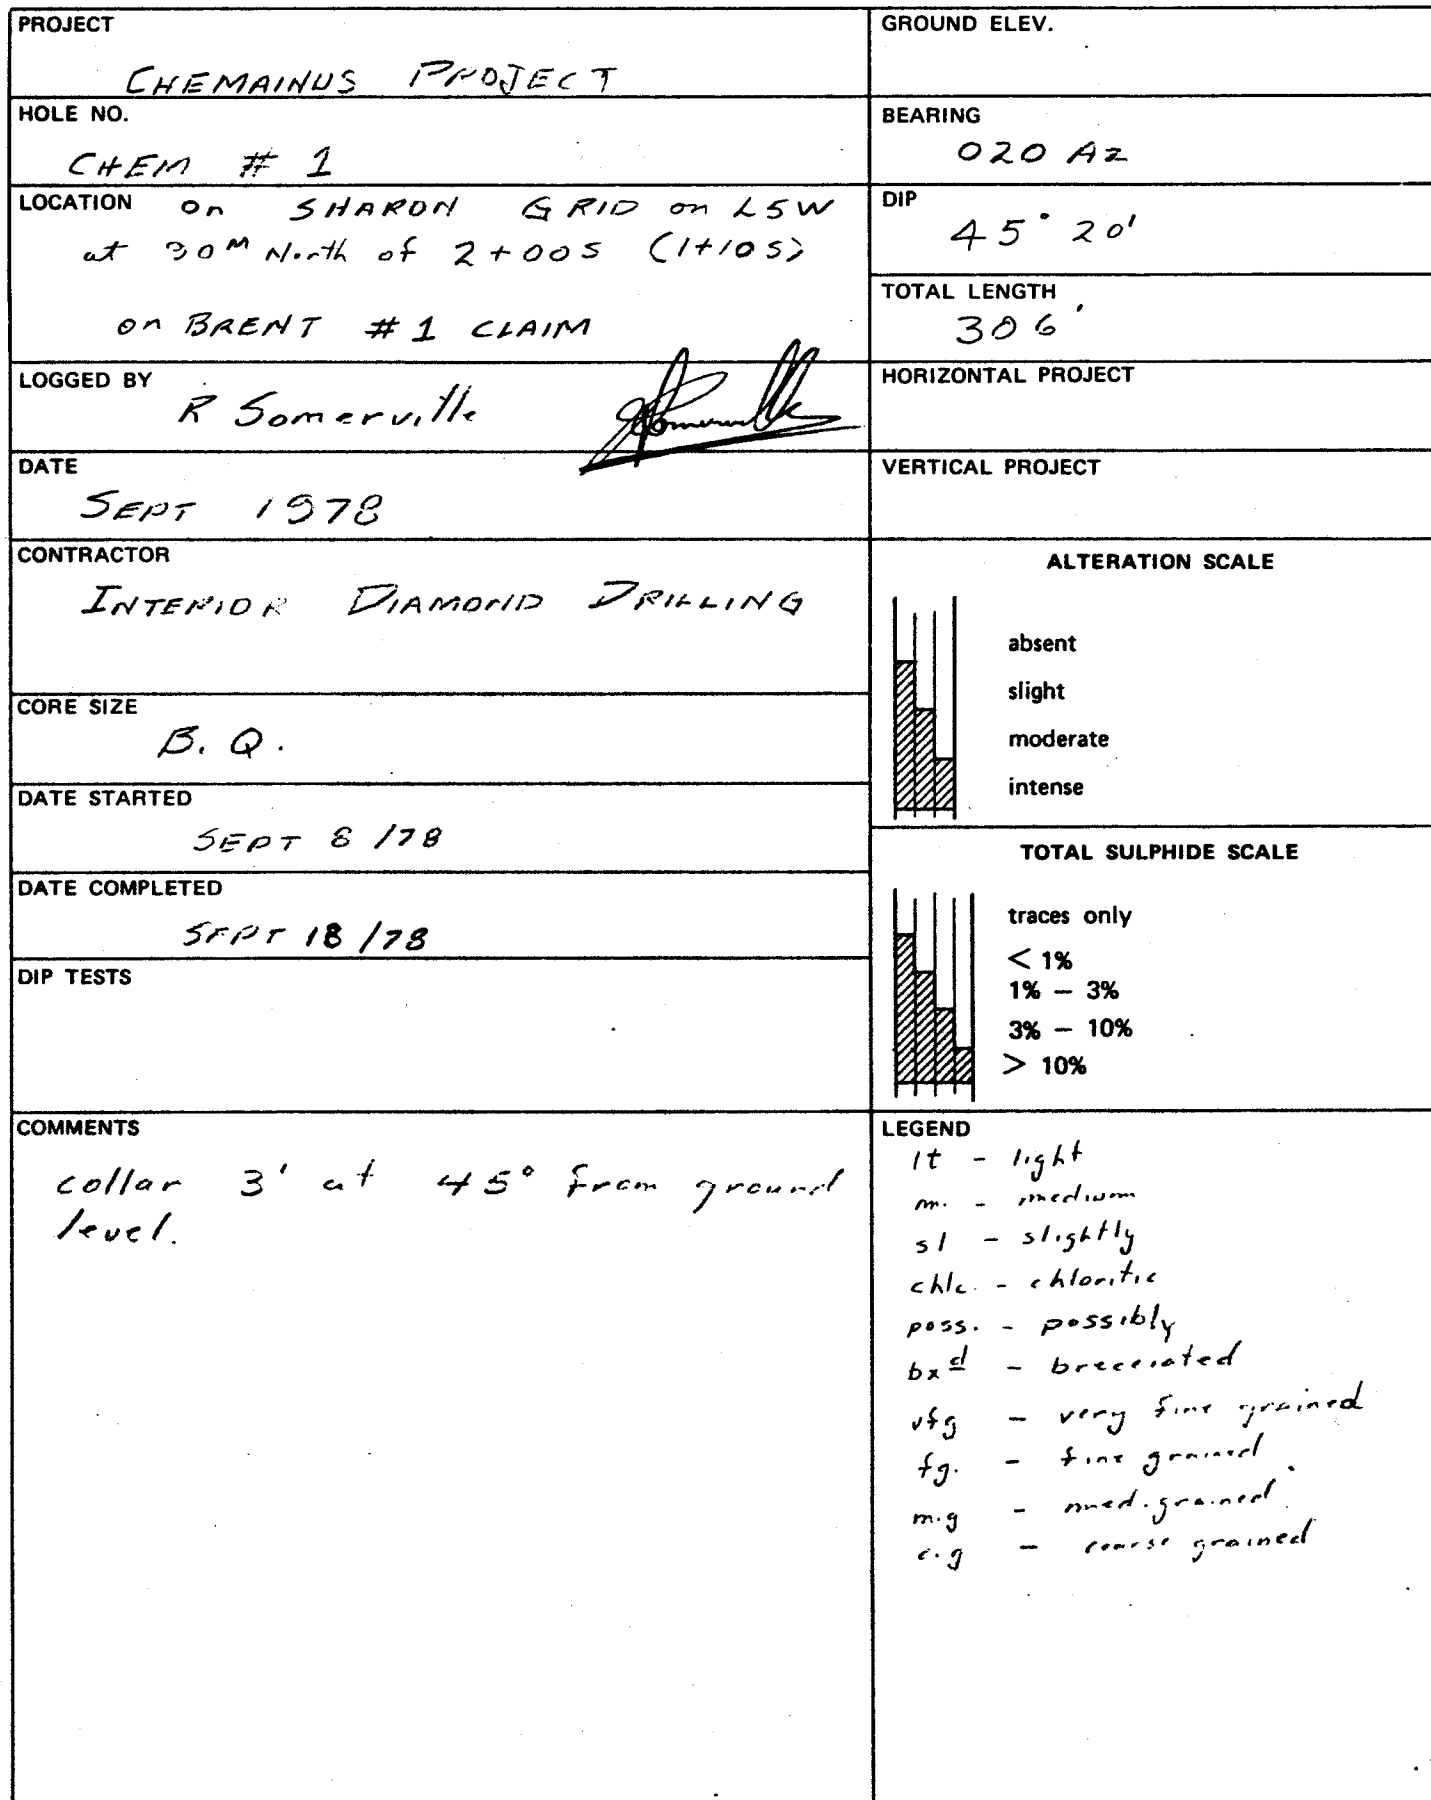 PROJECT
CHEMAINUS PROJECT
HOLE NO.
CHEM # 1
LOCATION on SHARON GRID on L5W
at 30M North of 2+00S (1+10S)
on BRENT #1 CLAIM
LOGGED BY
R Somerville
DATE
SEPT 1978
CONTRACTOR
INTERIOR DIAMOND DRILLING
CORE SIZE
B.Q.
DATE STARTED
SEPT 8/78
DATE COMPLETED
SEPT 18/78
DIP TESTS
COMMENTS
collar 3' at 45° from ground
level.
GROUND ELEV.
BEARING
020 Az
DIP
45° 20'
TOTAL LENGTH
306'
HORIZONTAL PROJECT
VERTICAL PROJECT
ALTERATION SCALE
absent
slight
moderate
intense
TOTAL SULPHIDE SCALE
traces only
< 1%
1% — 3%
3% — 10%
> 10%
LEGEND
lt - light
m. - medium
sl - slightly
chlc. - chloritic
poss. - possibly
bxd - brecciated
vfg - very fine grained
fg. - fine grained
m.g - med. grained
c.g - coarse grained